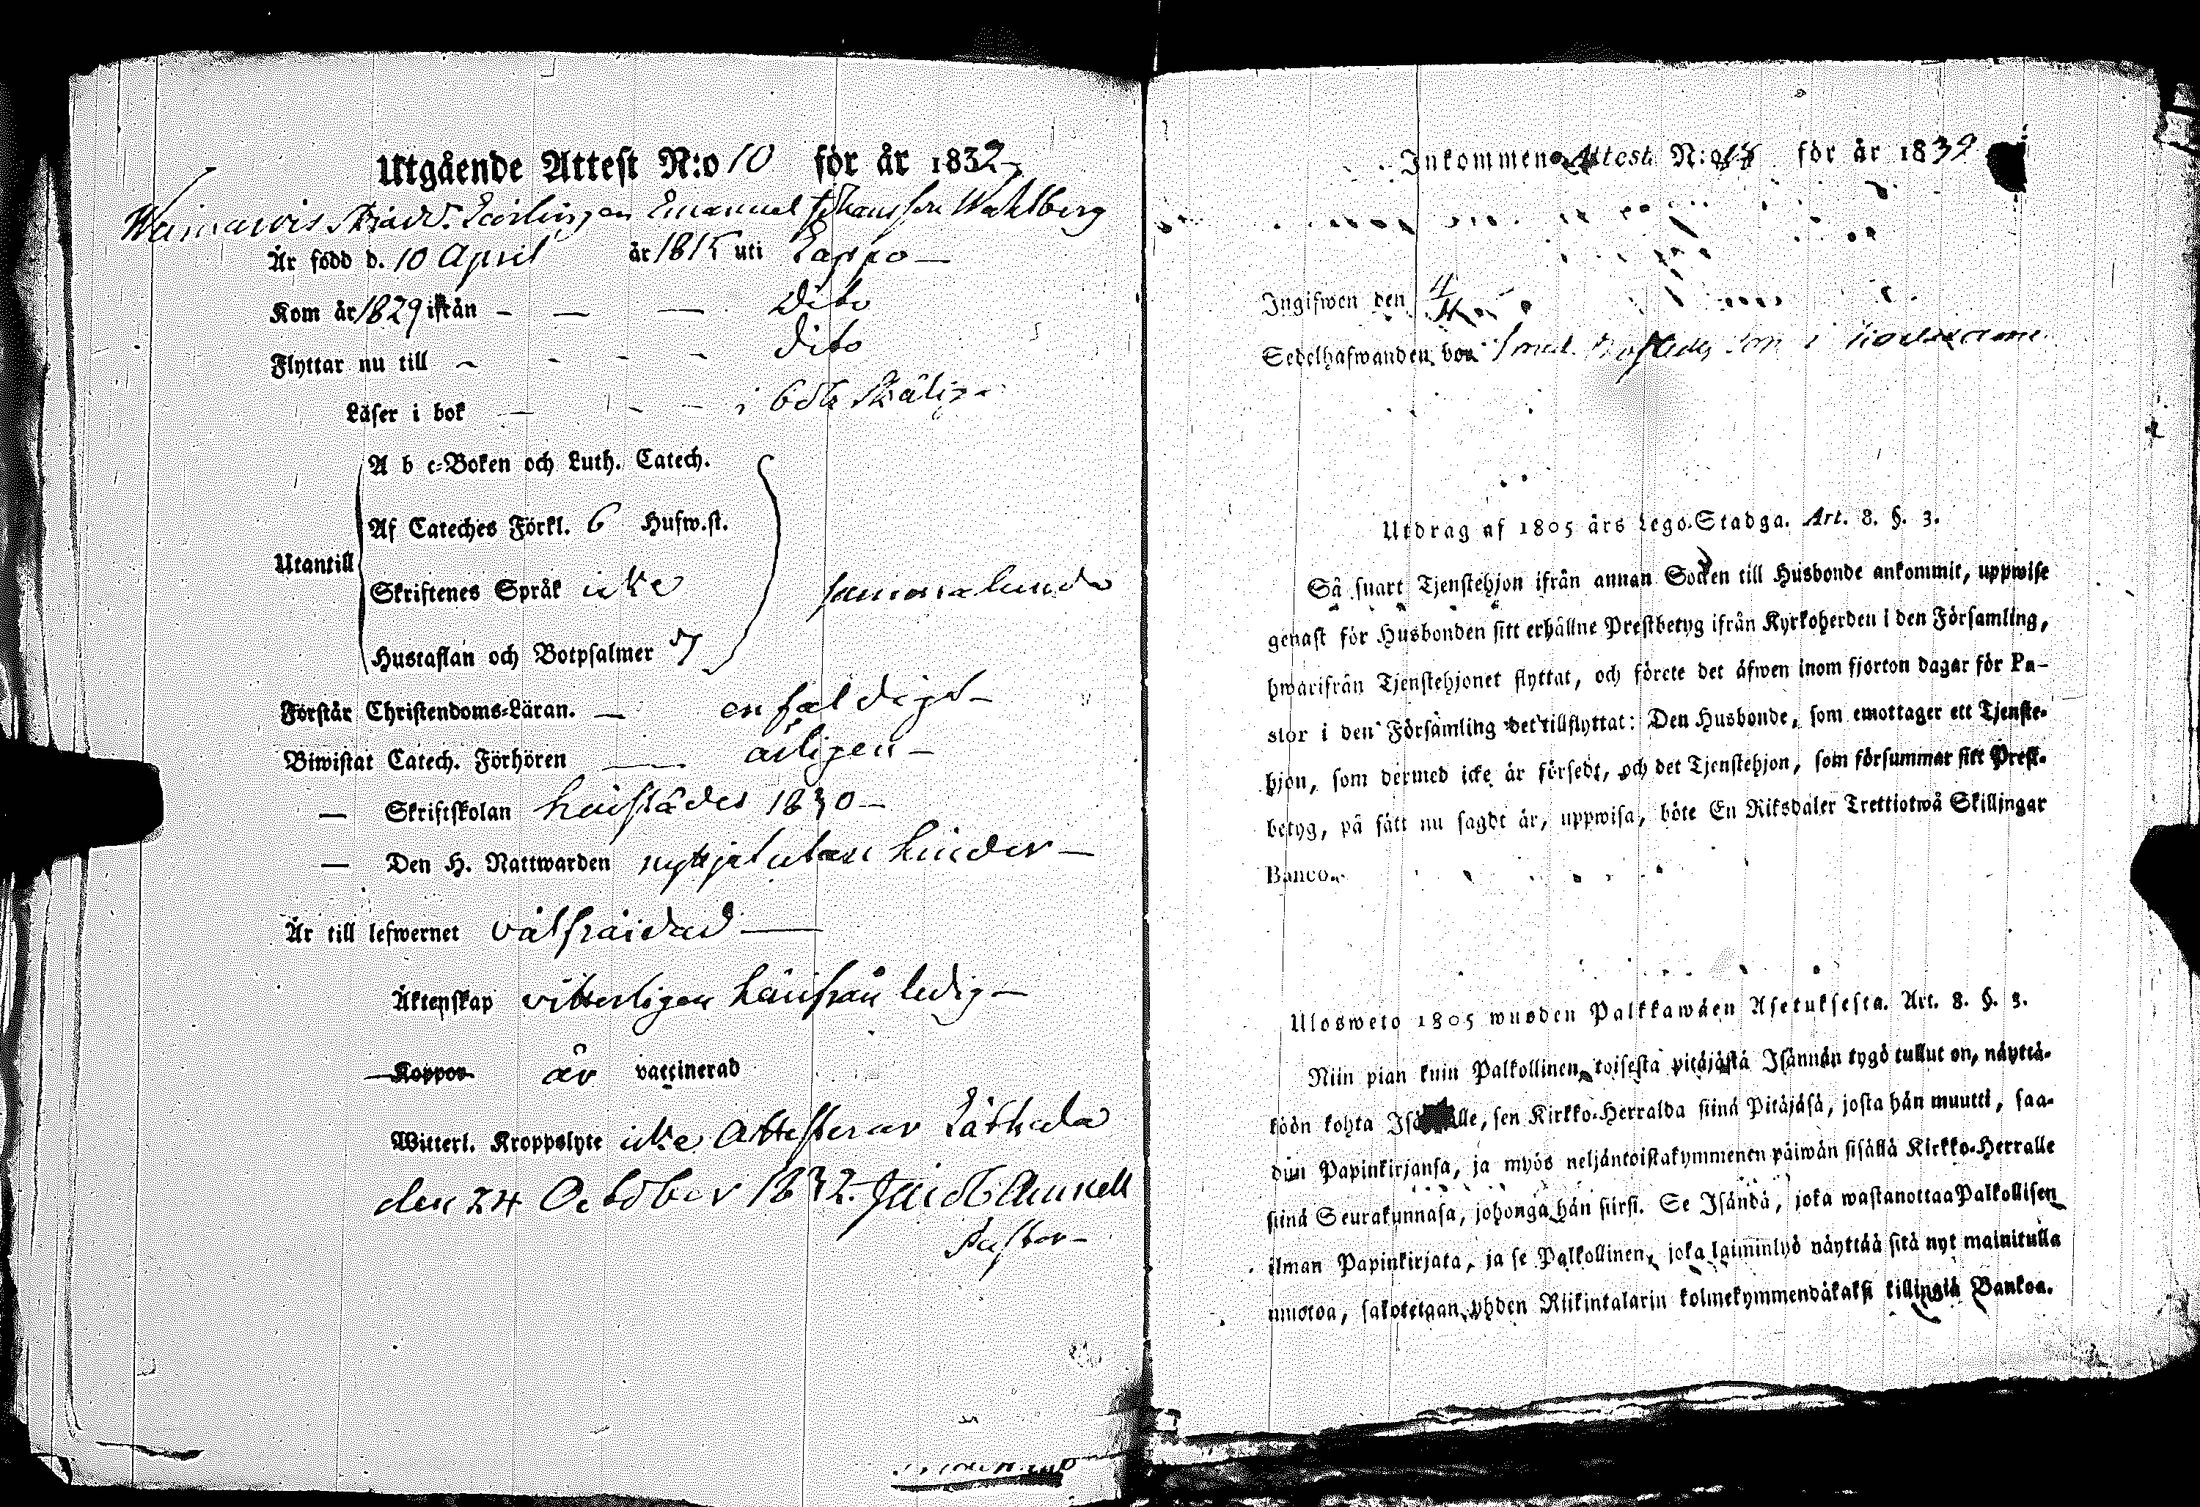 Utgående Attest N:o 10 för år 1832
Skrädd. Lärlingen Emanuel Johansson Wahlberg
Är född d. 10 April år 1815 uti Lappo —
Kom år 1829 ifrån - — — Dito
Flyttar nu till - - - - Dito
Läser i bok — - — i bok skälig
A b c-Boken och Luth. Catech.
Af Cateches Förkl. 6 Hufw.st.
Utantill
Skriftenes Språk icke sammalunda
Hustaflan och Botpsalmer 7
Förstår Christendoms-Läran. — enfaldigt —
Biwistat Catech. Förhören — årligen —
— Skriftskolan härstädes 1830 —
— Den H. Nattwarden nyttjat utan hinder —
Är till lefwernet välfräjdad —
Äktenskap vitterligen härifrån ledig —
Koppor är vaccinerad
Witterl. Kroppslyte icke Attesterar
den 24 October 1832.
Pastor —
Inkommen Attest N:o för år 1832
Ingifwen den
Sedelhafwanden bor i
Utdrag af 1805 års Lego-Stadga. Art. 8. §. 3.
Så snart Tjenstehjon ifrån annan Socken till Husbonde ankommit, uppwise
genast för Husbonden sitt erhållne Prestbetyg ifrån Kyrkoherden i den Församling,
hwarifrån Tjenstehjonet flyttat, och förete det äfwen inom fjorton dagar för Pa-
stor i den Församling det tillflyttat: Den Husbonde, som emottager ett Tjenste-
hjon, som dermed icke är försedt, och det Tjenstehjon, som försummar sitt Prest-
betyg, på sätt nu sagdt är, uppwisa, böte En Riksdaler Trettiotwå Skillingar
Banco.
Ulosweto 1805 wuoden Palkkawäen Asetuksesta. Art. 8. §. 3.
Niin pian kuin Palkollinen toisesta pitäjästä Isännän tygö tullut on, näyttä-
köön kohta lle, sen Kirkko-Herralda siinä Pitäjäsä, josta hän muutti, saa-
dun Papinkirjansa, ja myös neljäntoistakymmenen päiwän sisällä Kirkko-Herralle
siinä Seurakunnasa, johonga hän siirsi. Se Isändä, joka wastanottaa Palkollisen
ilman Papinkirjata, ja se Palkollinen, joka laiminlyö näyttää sitä nyt mainitulla
muotoa, sakotetaan yhden Riikintalarin kolmekymmendäkaksi killingiä Bankoa.